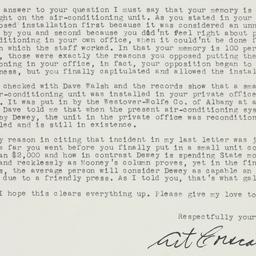 answer to your question I must say that your memory is
ght on the air-conditioning unit. As you stated in your
posed installation first because it was considered an unn
by you and second because you didn'nt feel right about
itioning in your own office, when it could'nt be done f
n which the staff worked. In that your memory is 100 per
, those were exactly the reasons you opposed putting the
oning in your office, in fact, your opposition began to
ness, but you finally capitulated and allowed the instal
checked with Dave Walsh and the records show that a smal
ir-conditioning unit was installed in the private office
. It was put in by the Westover-Wolfe Co. of Albany at a
Dave told me that when the present air-conditioning sys
by Dewey, the unit in the private office was recondition
led and is still in existence.
y reason in citing that incident in my last letter was j
s far you went before you finally put in a small unit co
an $2,000 and how in contrast Dewey is spending State mo
and recklessly as Mooney's column proves, yet in the fin
s, the average person will consider Dewey as capable an
due to a friendly press. As I told you, that's what gal
I hope this clears everything up. Please give my love to
Respectfully your
Art